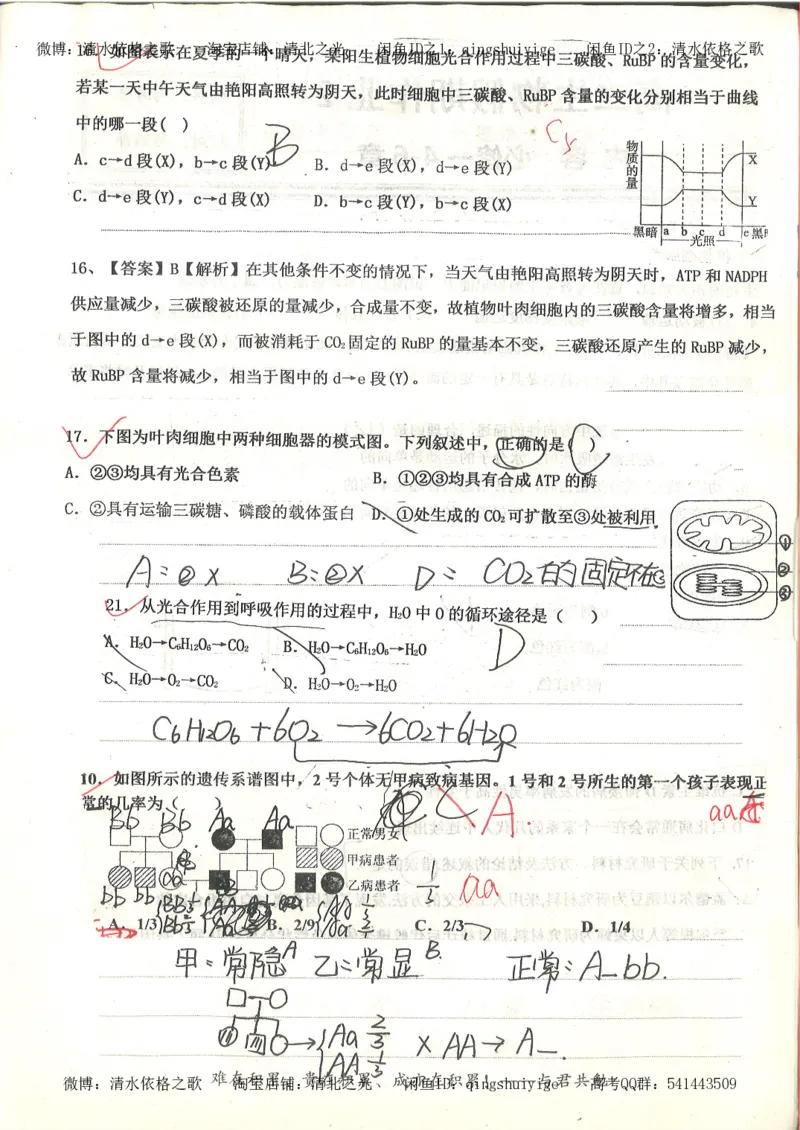 微博：清水依格之歌 淘宝店铺：清北之光 闲鱼ID之1：qingshuiyige 闲鱼ID之2：清水依格之歌
16. 如图表示在夏季的一个晴天，某阳生植物细胞光合作用过程中三碳酸、RuBP的含量变化，
若某一天中午天气由艳阳高照转为阴天，此时细胞中三碳酸、RuBP含量的变化分别相当于曲线
中的哪一段( )
B
C₅
A. c→d段(X)，b→c段(Y)
B. d→e段(X)，d→e段(Y)
C. d→e段(Y)，c→d段(X)
D. b→c段(Y)，b→c段(X)
物质的量
X
Y
黑暗 a b c d e 黑暗
光照
16、【答案】B【解析】在其他条件不变的情况下，当天气由艳阳高照转为阴天时，ATP和NADPH
供应量减少，三碳酸被还原的量减少，合成量不变，故植物叶肉细胞内的三碳酸含量将增多，相当
于图中的d→e段(X)，而被消耗于CO₂固定的RuBP的量基本不变，三碳酸还原产生的RuBP减少，
故RuBP含量将减少，相当于图中的d→e段(Y)。
17. 下图为叶肉细胞中两种细胞器的模式图。下列叙述中，正确的是( )
A. ②③均具有光合色素
B. ①②③均具有合成ATP的酶
C. ②具有运输三碳糖、磷酸的载体蛋白
D. ①处生成的CO₂可扩散至③处被利用
①
②
③
A：②× B：②× D： CO2的固定不在③
21. 从光合作用到呼吸作用的过程中，H₂O中O的循环途径是( )
A. H₂O→C₆H₁₂O₆→CO₂
B. H₂O→C₆H₁₂O₆→H₂O
D
C. H₂O→O₂→CO₂
D. H₂O→O₂→H₂O
C6H12O6+6O2→6CO2+6H2O
10. 如图所示的遗传系谱图中，2号个体无甲病致病基因。1号和2号所生的第一个孩子表现正
常的几率为( )
A.
Bb Bb Aa Aa
正常男女
甲病患者
乙病患者
bb bb
1/3 aa
A. 1/3
B. 2/9
C. 2/3
D. 1/4
甲：常隐A 乙：常显B. 正常：A_bb.
Aa 2/3
AA 1/3
× AA → A_.
难在积累 贵在积累 成亦在积累！ 与君共勉
微博：清水依格之歌 淘宝店铺：清北之光 闲鱼ID：qingshuiyige 高考QQ群：541443509